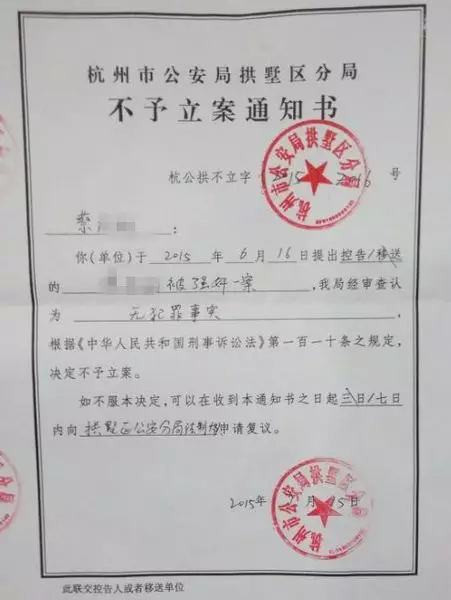 杭州市公安局拱墅区分局
不予立案通知书
杭公拱不立字 号
蔡 :
你(单位)于 2015 年 6 月 16 日提出控告/移送
的 被强奸一案 ,我局经审查认
为 无犯罪事实 ,
根据《中华人民共和国刑事诉讼法》第一百一十条之规定,
决定不予立案。
如不服本决定,可以在收到本通知书之日起三日/七日
内向 拱墅区公安分局法制 申请复议。
杭州市公安局拱墅区分局
2015年 月 日
杭州市公安局拱墅区分局
此联交控告人或者移送单位